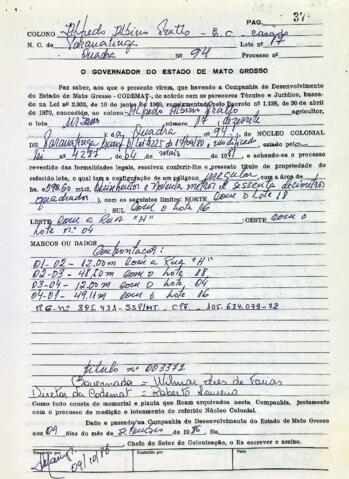 PAG. 37
COLONO Alfredo Albino Pratto - B.C. casado
N. C. de Paranatinga Lote nº 17
Quadra Nº 94 Processo nº
O GOVERNADOR DO ESTADO DE MATO GROSSO
Faz saber, aos que o presente virem, que havendo a Companhia de Desenvolvimento
do Estado de Mato Grosso - CODEMAT, de acôrdo com os pareceres Técnico e Jurídico, basea-
do na Lei nº 2.935, de 10 de junho de 1969, regulamentado pelo Decreto nº 1.138, de 30 de abril
de 1970, concedido ao colono Alfredo Albino Pratto agricultor,
o lote Urbano nº 17 dezessete
da Quadra 94 do NÚCLEO COLONIAL
DE Paranatinga modificado pela
Lei nº 4277, de 04 de maio de 1981, e achando-se o processo
revestido das formalidades legais, resolveu conferir-lhe o presente título de propriedade do
referido lote, o qual tem a configuração de um polígono irregular com a área de
ha. 590,60 mt2. Quinhentos e Noventa metros e sessenta decimetros
quadrados), com os seguintes limites: NORTE com o Lote 18
SUL com o Lote 16
LESTE com a Rua "H" ; OESTE com o
Lote nº 04
MARCOS OU DADOS Confrontacoes:
01-02 - 12.00m com a Rua "H"
02-03 - 48.50m com o Lote 18
03-04 - 12.00m com o Lote, 04
04-01 - 49.11m com o Lote 16
RG-nº 395.433-SSP/MT. CPF. 105.634.079-72
Título nº 003372
Governador = Wilmar Peres de Farias
Diretor da Codemat = Roberto Loureiro
Como tudo consta de memorial e planta que ficam arquivados nesta Companhia, juntamente
com o processo de medição e loteamento do referido Núcleo Colonial.
Dado e passado na Companhia de Desenvolvimento do Estado de Mato Grosso
aos 09 dias do mês de Setembro de 1986 Eu,
Chefe do Setor de Colonização, o fiz escrever e assino.
Transcrito por Conferido por Visto
09/10/86